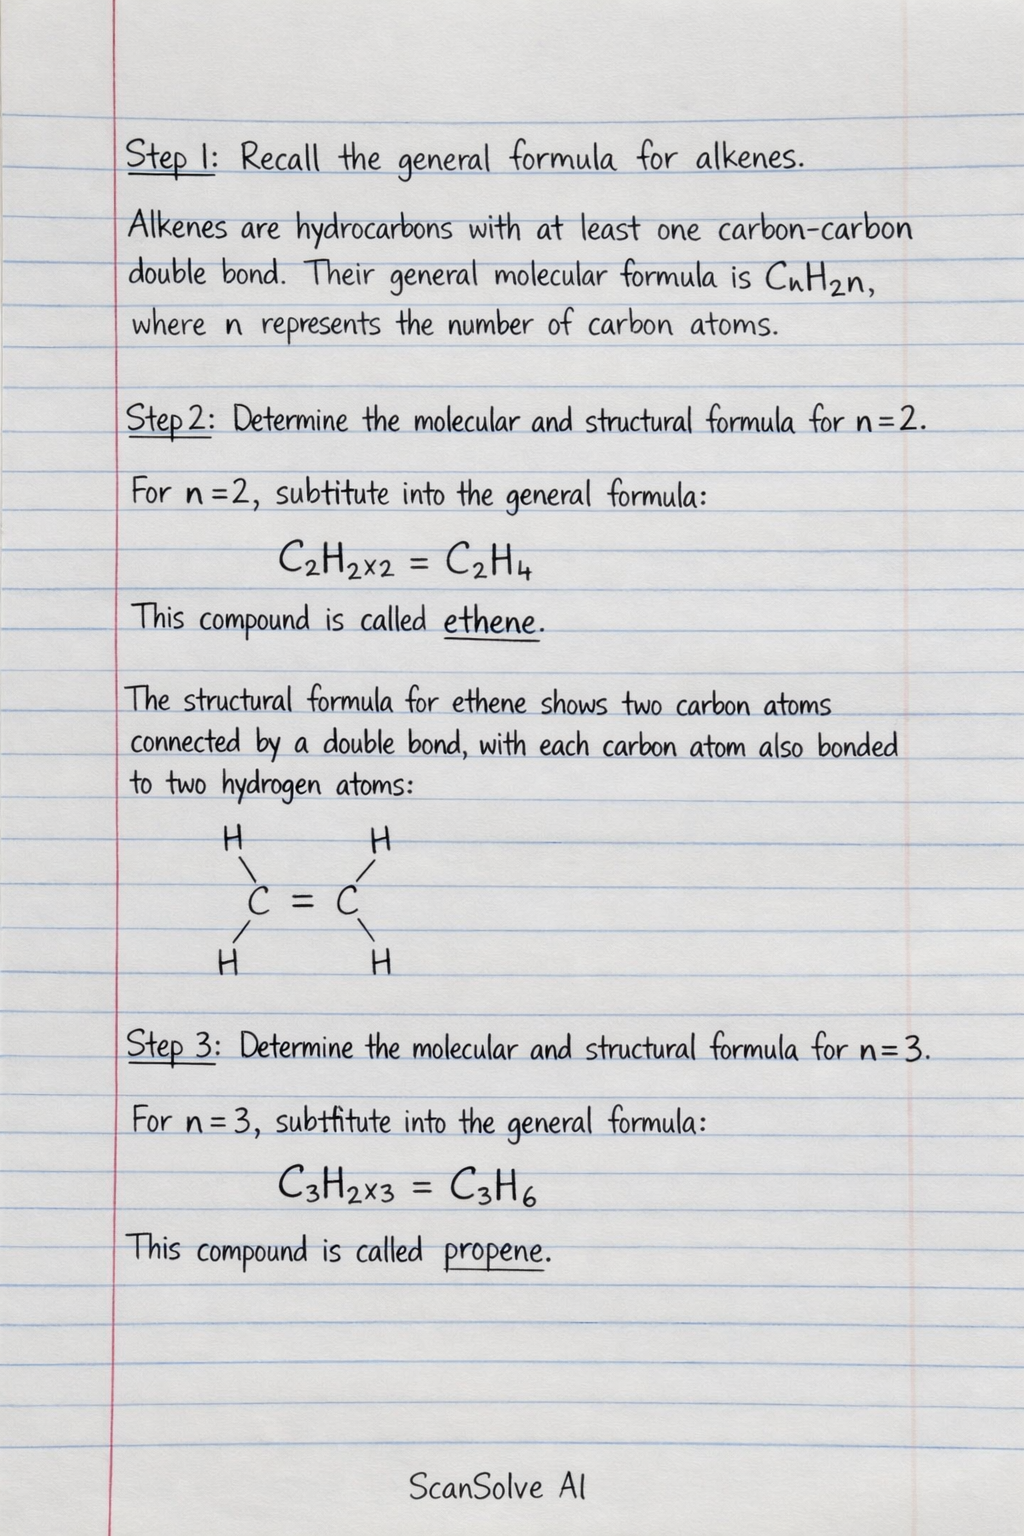 Step 1: Recall the general formula for alkenes.
Alkenes are hydrocarbons with at least one carbon-carbon
double bond. Their general molecular formula is CnH2n,
where n represents the number of carbon atoms.
Step 2: Determine the molecular and structural formula for n=2.
For n=2, subtitute into the general formula:
C₂H₂ₓ₂ = C₂H₄
This compound is called ethene.
The structural formula for ethene shows two carbon atoms
connected by a double bond, with each carbon atom also bonded
to two hydrogen atoms:
H H
C = C
H H
Step 3: Determine the molecular and structural formula for n=3.
For n=3, subtfitute into the general formula:
C₃H₂ₓ₃ = C₃H₆
This compound is called propene.
ScanSolve AI